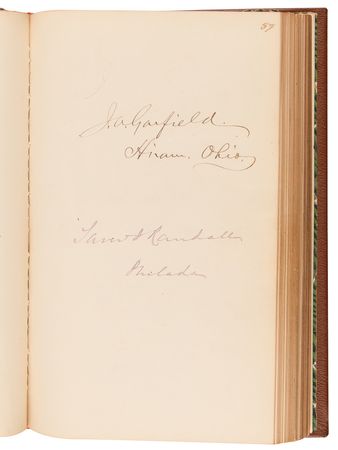 57
J. A. Garfield.
Hiram. Ohio.
Saml J Randall
Philada